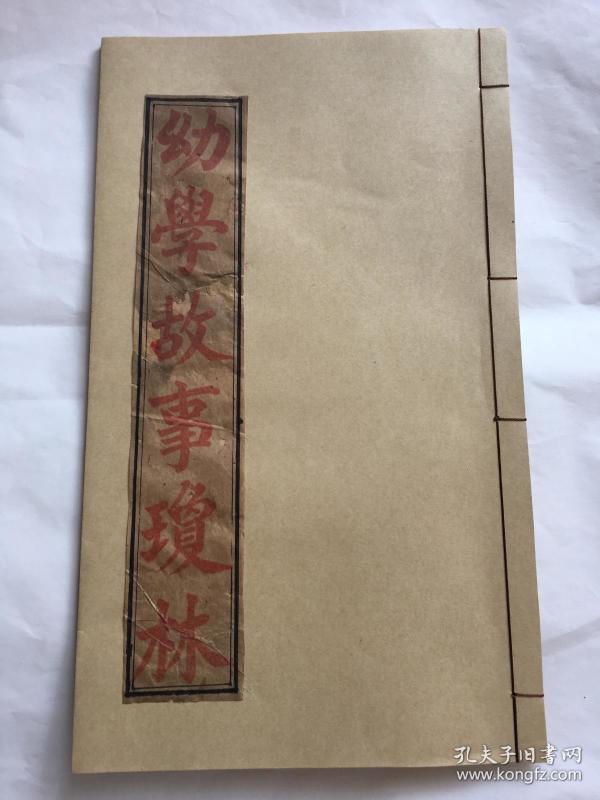 幼學故事瓊林
孔夫子旧書网
www.kongfz.com